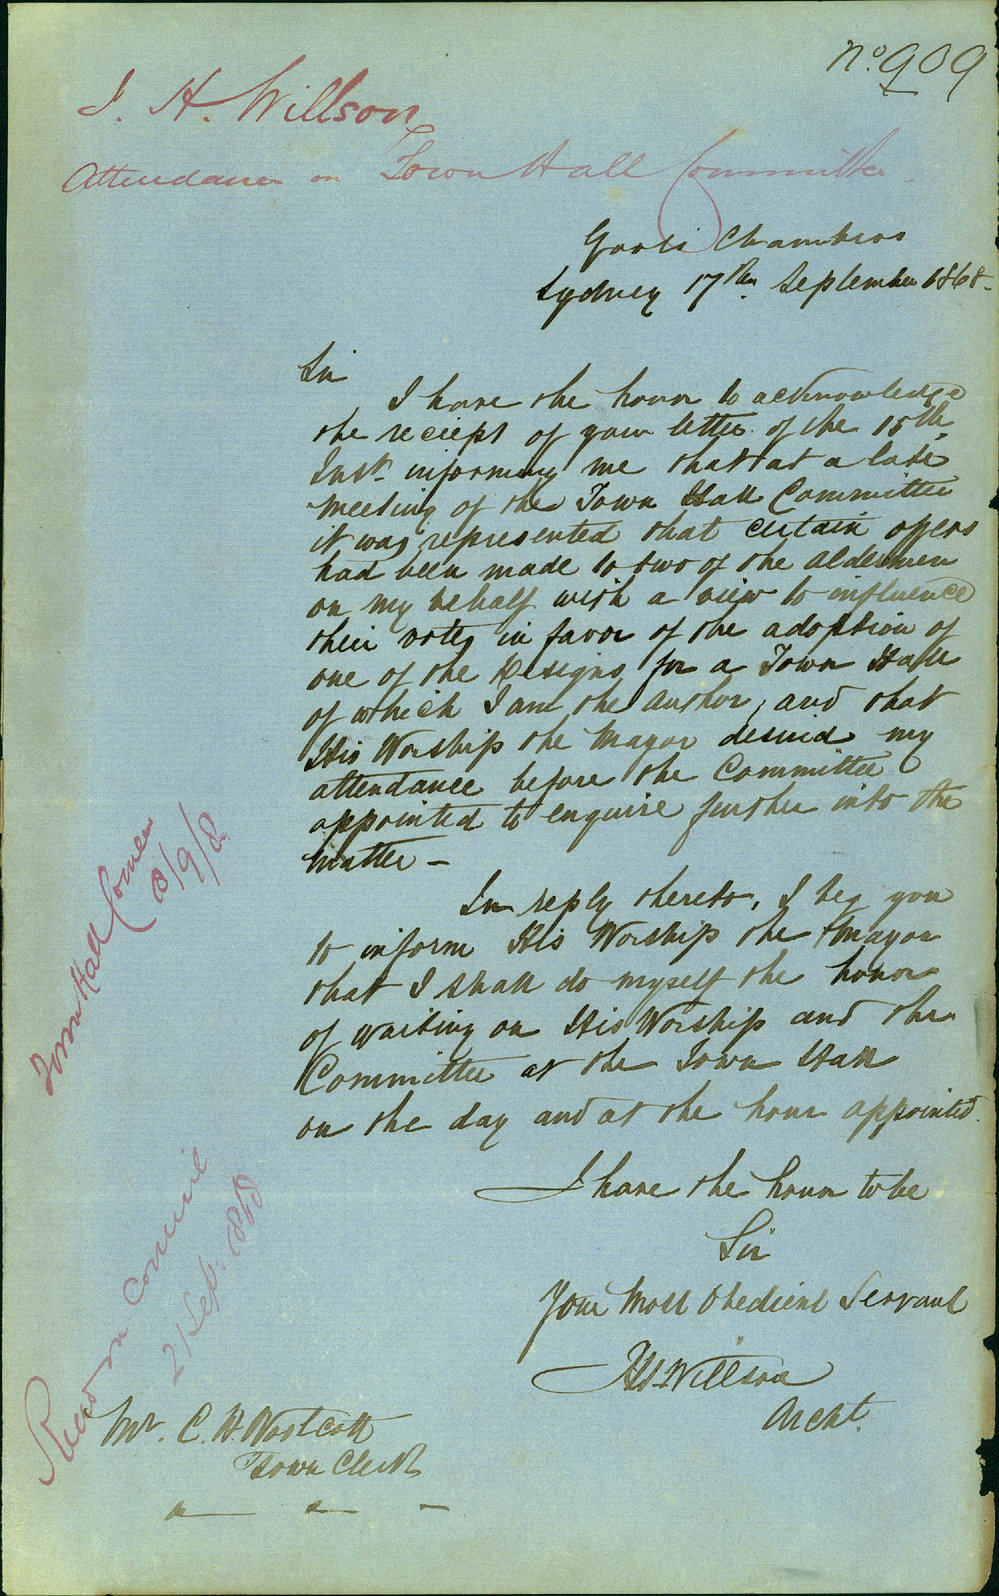 No. 909
J. H. Willson
Attendance on Town Hall Committee
Chambers
Sydney 17th September 1868.
Sir
I have the honor to acknowledge
the reciept of your letter of the 15th
Inst. informing me that at a late
meeting of the Town Hall Committee
it was represented that certain offers
had been made to two of the aldermen
on my behalf with a view to influence
their votes in favor of the adoption of
one of the Designs for a Town Hall
of which I am the author, and that
His Worship the Mayor desired my
attendance before the Committee
appointed to enquire further into the
matter –
In reply thereto, I beg you
to inform His Worship the Mayor
that I shall do myself the honor
of waiting on His Worship and the
Committee at the Town Hall
on the day and at the hour appointed.
I have the honor to be
Sir
Your Most Obedient Servant
Willson
Archt.
Mr. C. H. Woolcott
Town Clerk
Town Hall Comee
18/9/8
Read in Council
21 Sep. 1868